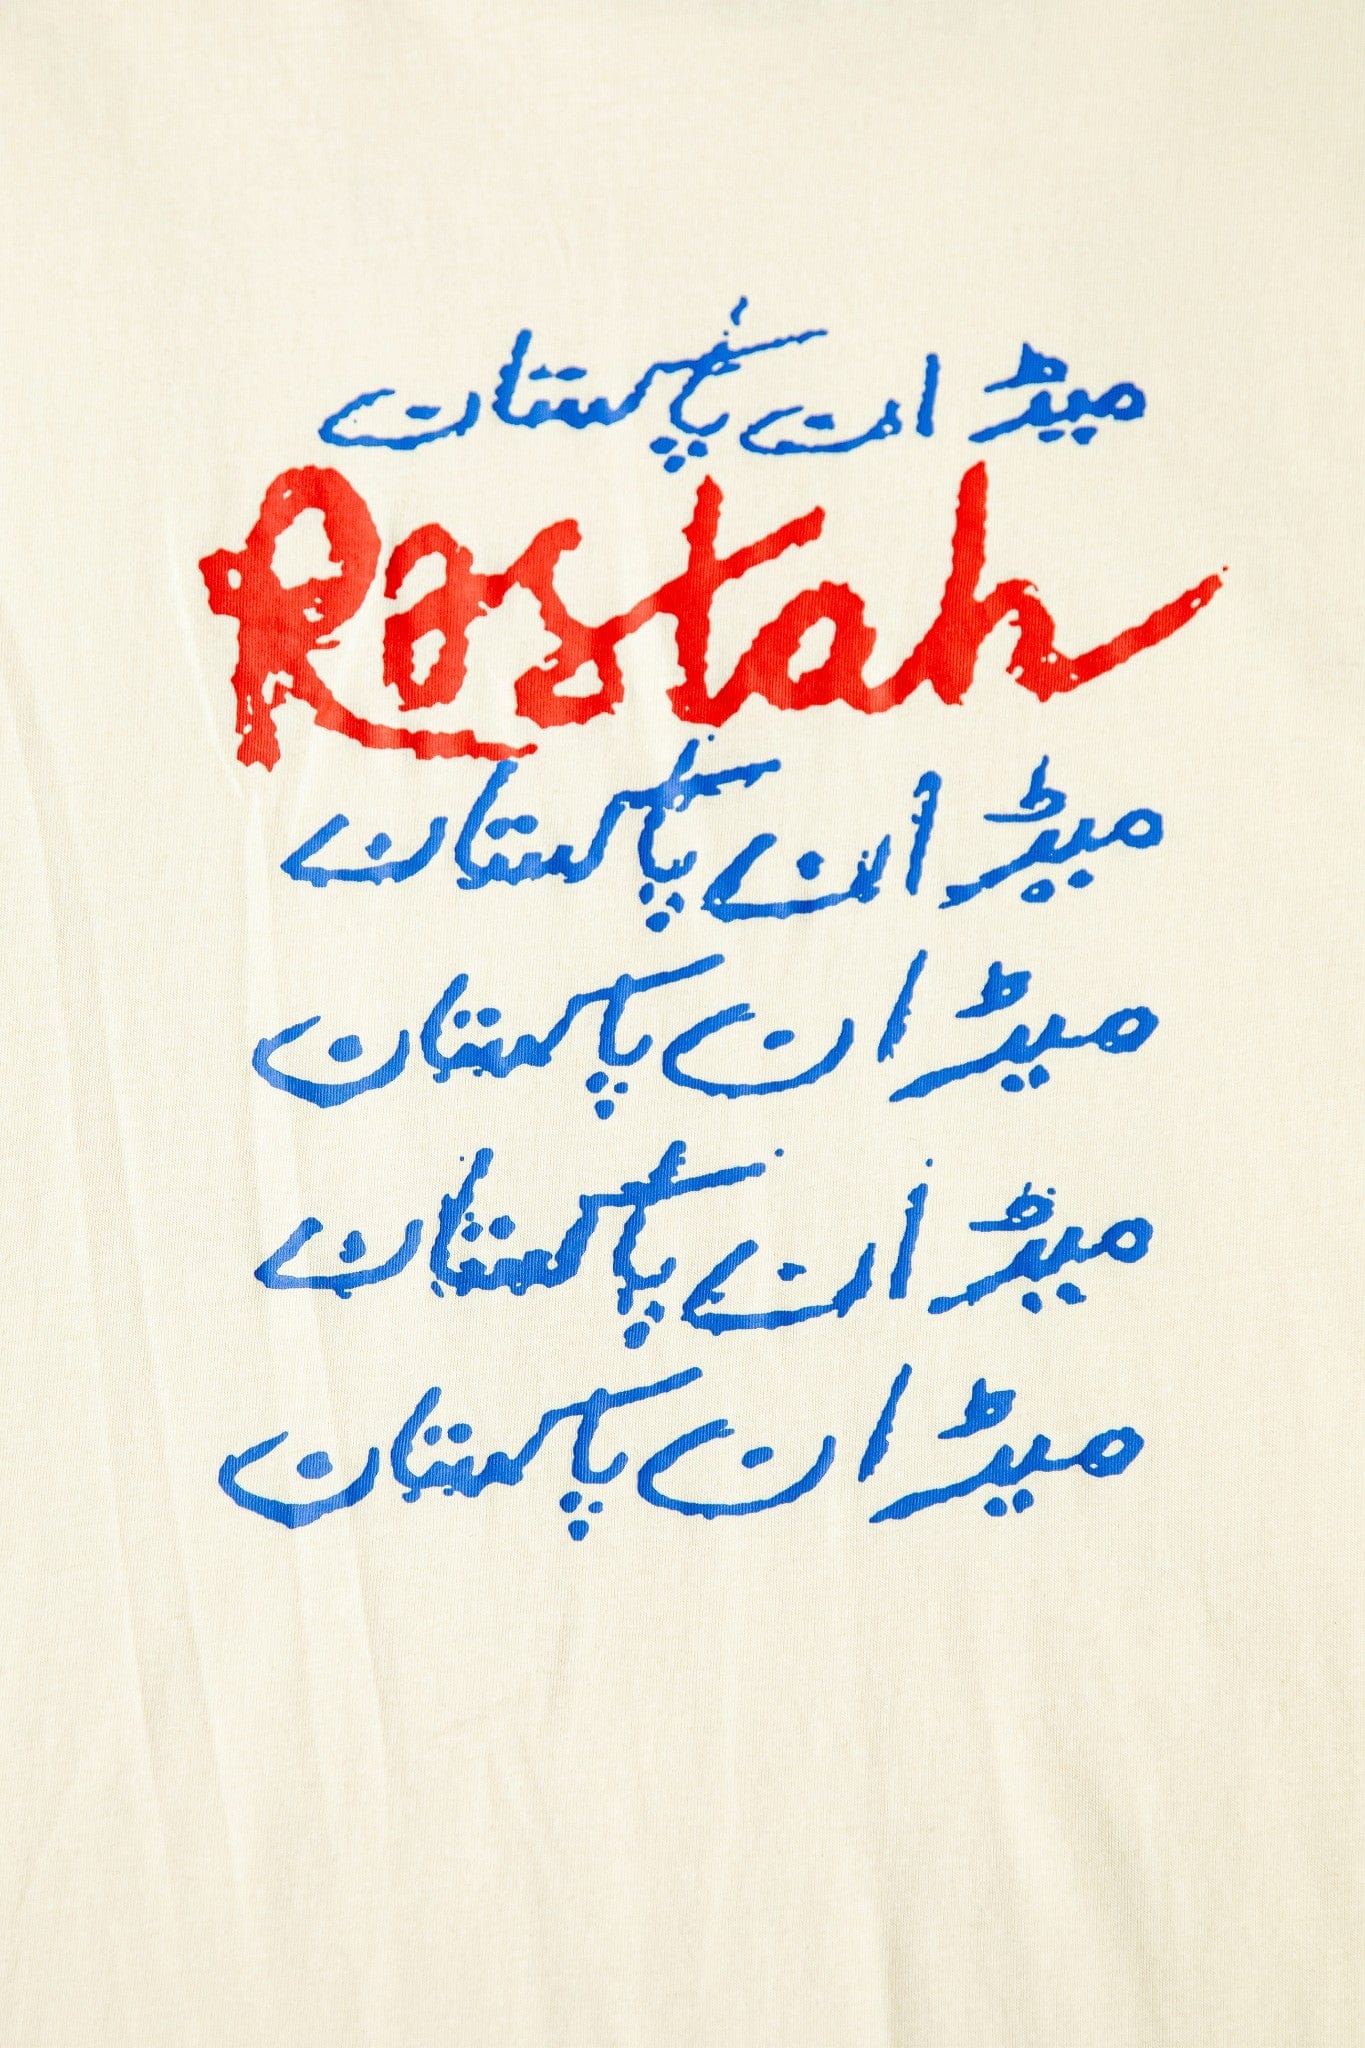 میڈ ان پاکستان
Rastah
میڈ ان پاکستان
میڈ ان پاکستان
میڈ ان پاکستان
میڈ ان پاکستان